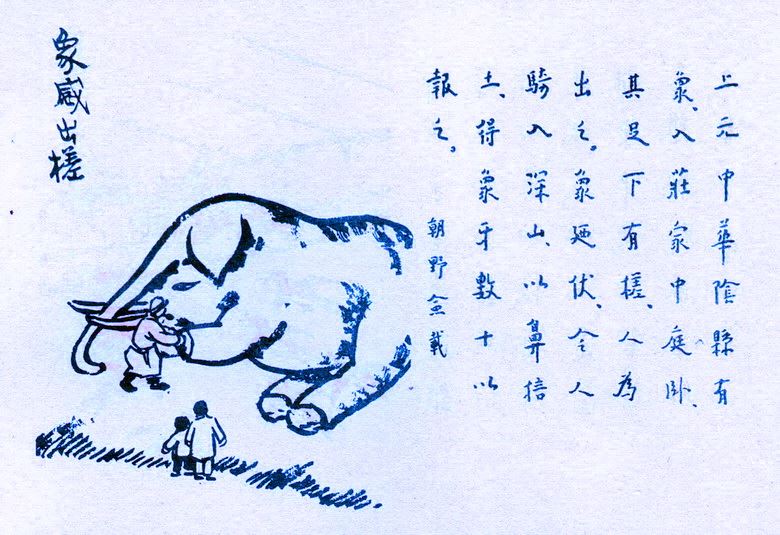 上元中華陰縣有
象、入莊家中庭卧、
其足下有槎、人為
出之。象廼伏、令人
騎入深山、以鼻掊
土、得象牙數十以
報之。
朝野僉載
象感出槎